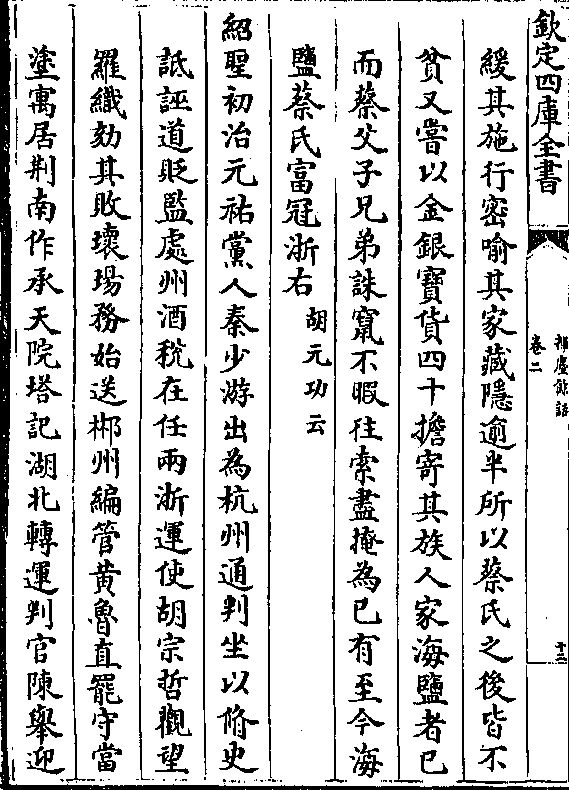 欽定四庫全書
揮麈餘話
卷二
十三
緩其施行密喻其家藏隱逾半所以蔡氏之後皆不
貧又嘗以金銀寶貨四十擔寄其族人家海鹽者已
而蔡父子兄弟誅竄不暇往索盡掩為已有至今海
鹽蔡氏富冠浙右胡元功云
紹聖初治元祐黨人秦少游出為杭州通判坐以脩史
詆誣道貶監處州酒稅在任兩浙運使胡宗哲觀望
羅織劾其敗壞塲務始送郴州編管黄魯直罷守當
塗寓居荆南作承天院塔記湖北轉運判官陳舉迎